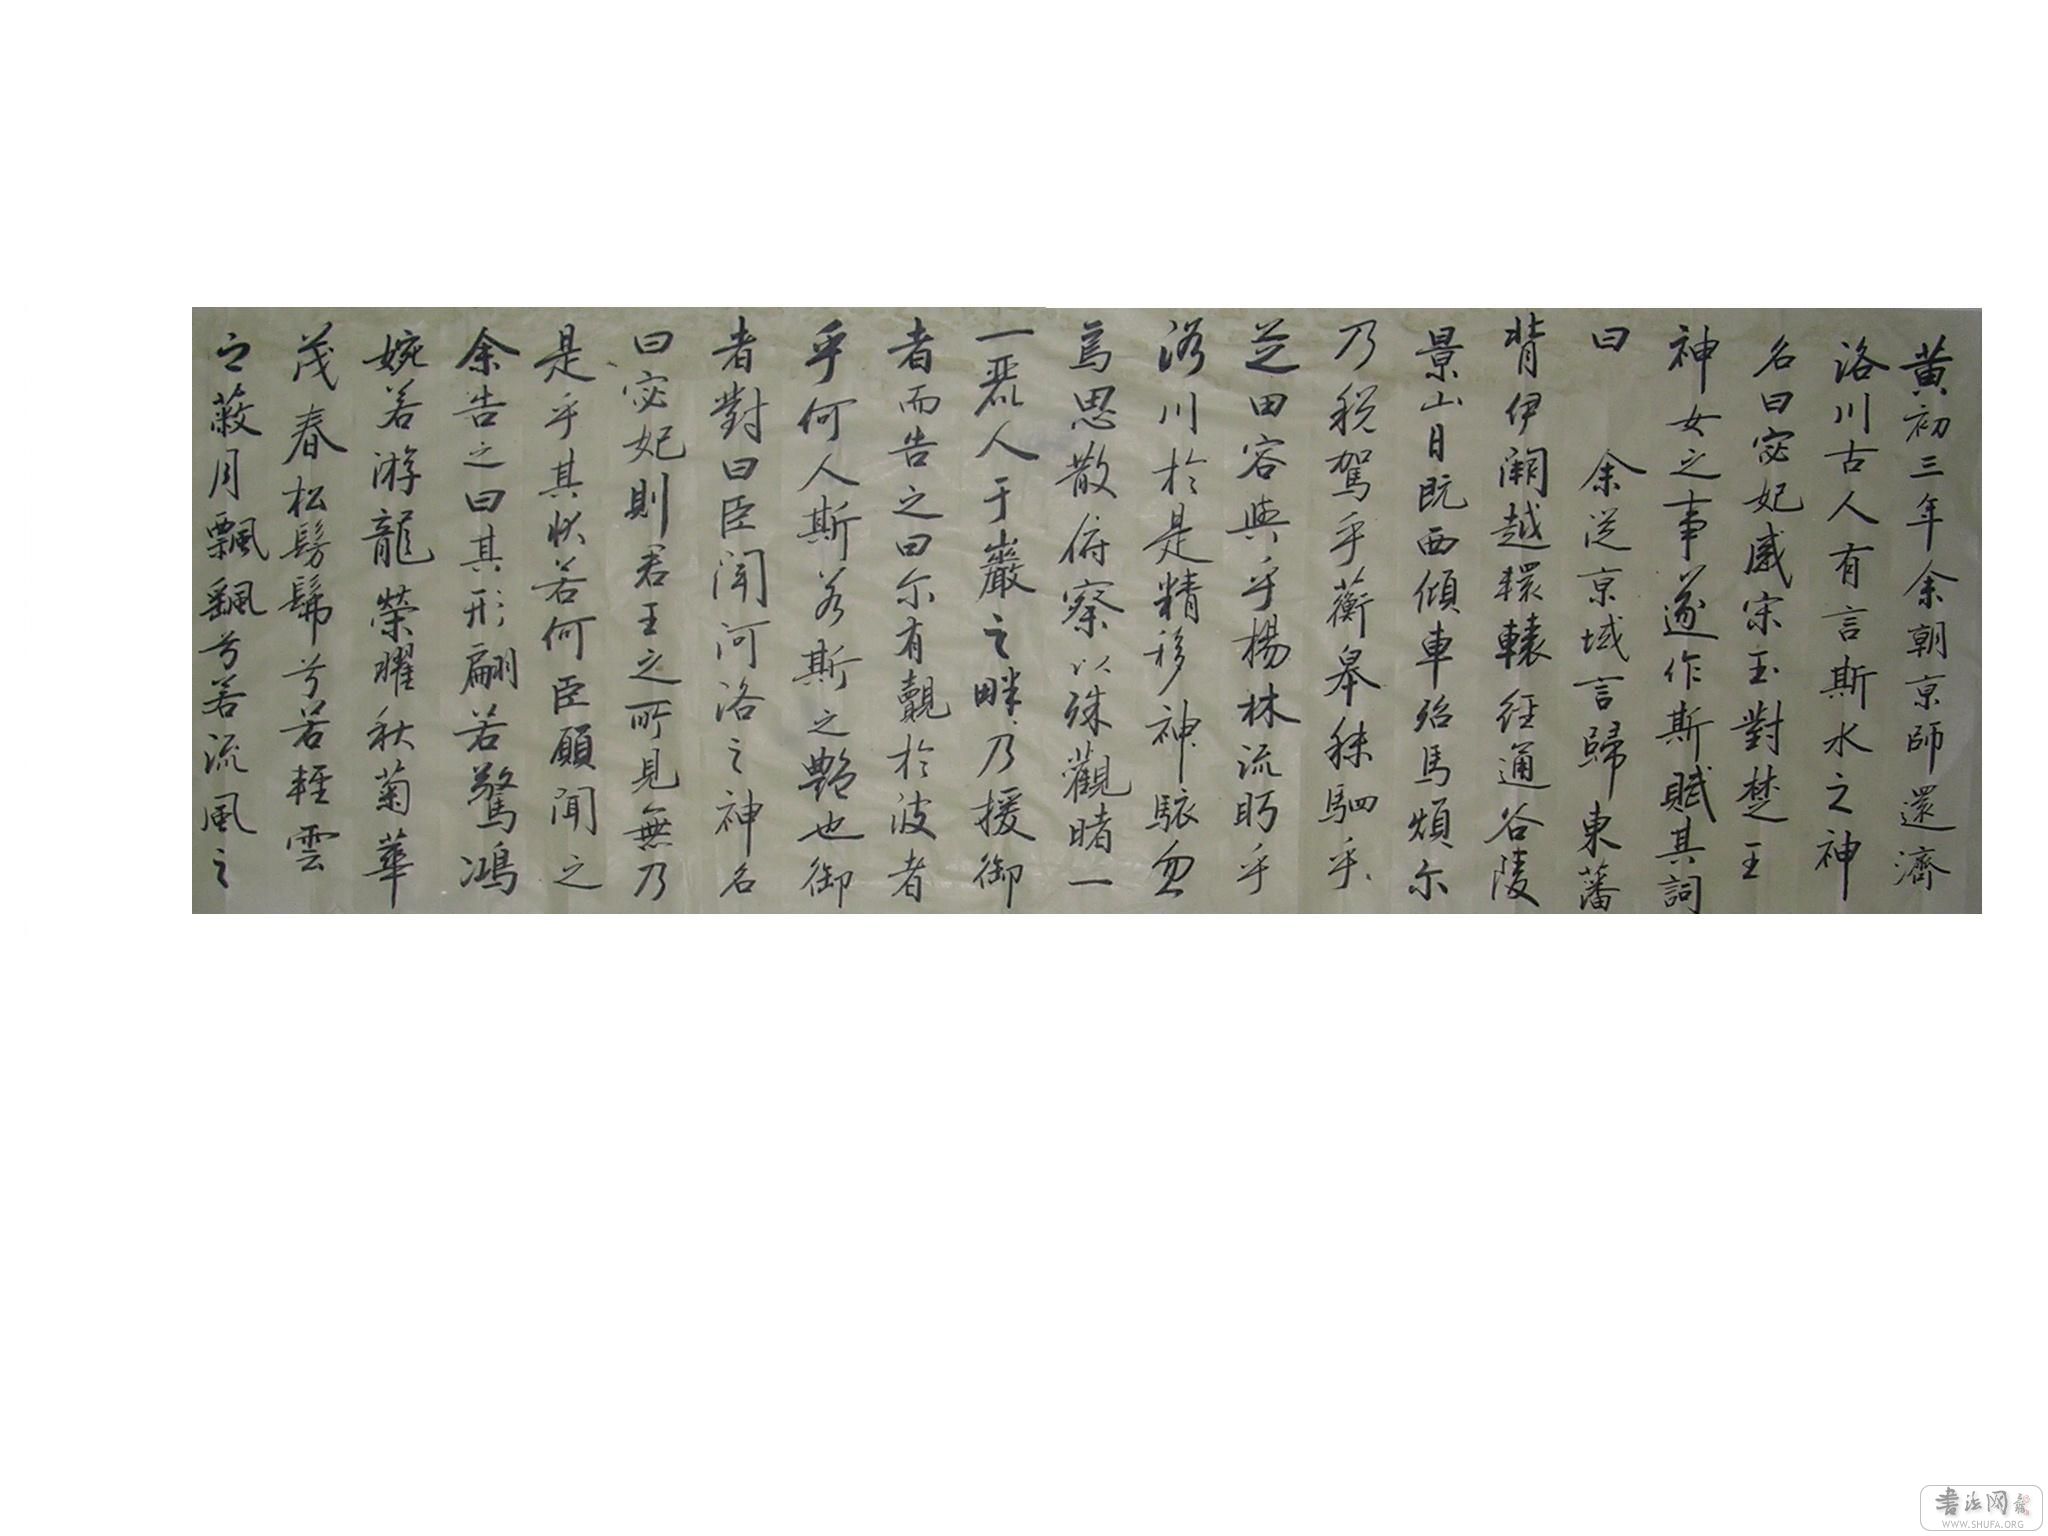 黄初三年余朝京師還濟
洛川古人有言斯水之神
名曰宓妃感宋玉對楚王
神女之事遂作斯賦其詞
曰 余從京域言歸東藩
背伊闕越轘轅經通谷陵
景山日既西傾車殆馬煩尔
乃税駕乎蘅皋秣駟乎
芝田容與乎楊林流眄乎
洛川於是精移神駭忽
焉思散俯察以殊觀睹一
一麗人于巖之畔乃援御
者而告之曰尔有覿於彼者
乎何人斯若斯之艷也御
者對曰臣聞河洛之神名
曰宓妃則君王之所見無乃
是乎其状若何臣願聞之
余告之曰其形翩若驚鴻
婉若游龍榮曜秋菊華
茂春松髣髴兮若輕雲
之蔽月飄飖兮若流風之
書法网
WWW.SHUFA.ORG